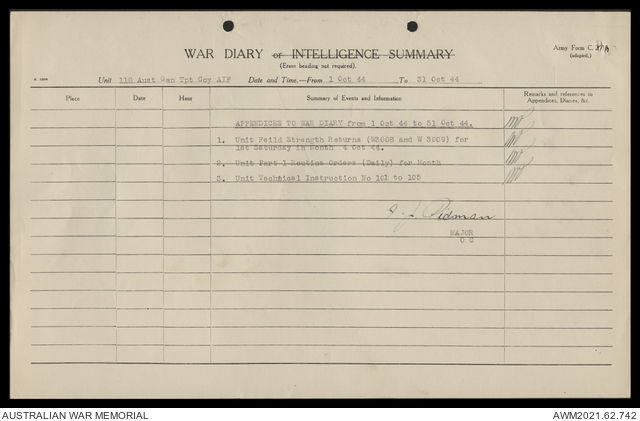 WAR DIARY or INTELLIGENCE SUMMARY
(Erase heading not required).
Army Form C.
(adopted.)
Unit 118 Aust Gen Tpt Coy AIF Date and Time.—From 1 Oct 44 To 31 Oct 44
Place Date Hour Summary of Events and Information Remarks and references to Appendices, Diaries, &c.
APPENDICES TO WAR DIARY from 1 Oct 44 to 31 Oct 44.
1. Unit Feild Strength Returns (W3008 and W 3009) for
1st Saturday in Month 4 Oct 44.
2. Unit Part 1 Routine Orders (Daily) for Month
3. Unit Technical Instruction No 101 to 105
MAJOR
O C
AUSTRALIAN WAR MEMORIAL
AWM2021.62.742